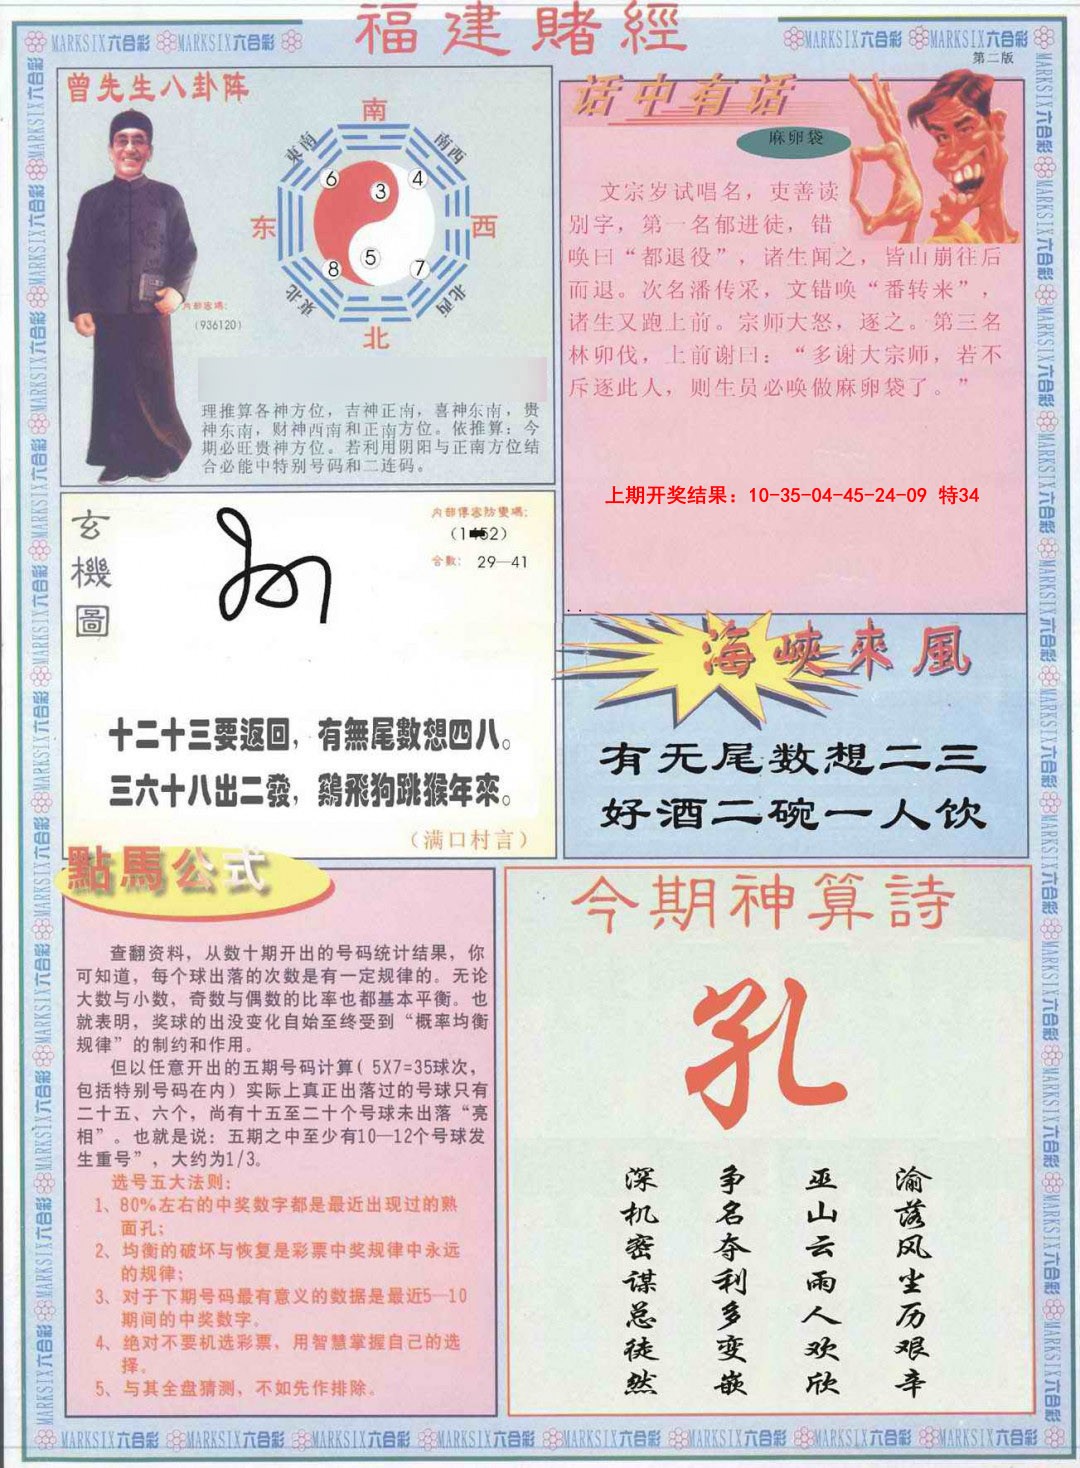 福建賭經
MARKSIX六合彩 MARKSIX六合彩
MARKSIX六合彩 MARKSIX六合彩
第二版
曾先生八卦阵
南
東南
南西
6
3
4
东
西
5
8
7
東北
北西
北
内部密碼：
（936120）
理推算各神方位，吉神正南，喜神东南，贵
神东南，财神西南和正南方位。依推算：今
期必旺贵神方位。若利用阴阳与正南方位结
合必能中特别号码和二连码。
话中有话
麻卵袋
文宗岁试唱名，吏善读
别字，第一名郁进徒，错
唤曰“都退役”，诸生闻之，皆山崩往后
而退。次名潘传采，文错唤“番转来”，
诸生又跑上前。宗师大怒，逐之。第三名
林卯伐，上前谢曰：“多谢大宗师，若不
斥逐此人，则生员必唤做麻卵袋了。”
上期开奖结果：10-35-04-45-24-09 特34
玄機圖
内部傳密防變碼：
合數： 29—41
十二十三要返回，有無尾數想四八。
三六十八出二發，鷄飛狗跳猴年來。
（满口村言）
海峽來風
有无尾数想二三
好酒二碗一人饮
點馬公式
查翻资料，从数十期开出的号码统计结果，你
可知道，每个球出落的次数是有一定规律的。无论
大数与小数，奇数与偶数的比率也都基本平衡。也
就表明，奖球的出没变化自始至终受到“概率均衡
规律”的制约和作用。
但以任意开出的五期号码计算（5X7=35球次，
包括特别号码在内）实际上真正出落过的号球只有
二十五、六个，尚有十五至二十个号球未出落“亮
相”。也就是说：五期之中至少有10—12个号球发
生重号”，大约为1/3。
选号五大法则：
1、80%左右的中奖数字都是最近出现过的熟
面孔；
2、均衡的破坏与恢复是彩票中奖规律中永远
的规律；
3、对于下期号码最有意义的数据是最近5—10
期间的中奖数字。
4、绝对不要机选彩票，用智慧掌握自己的选
择。
5、与其全盘猜测，不如先作排除。
今期神算詩
孔
深机密谋总徒然
争名夺利多变嵌
巫山云雨人欢欣
渝落风尘历艰辛
MARKSIX六合彩 MARKSIX六合彩 MARKSIX六合彩 MARKSIX六合彩 MARKSIX六合彩 MARKSIX六合彩 MARKSIX六合彩 MARKSIX六合彩